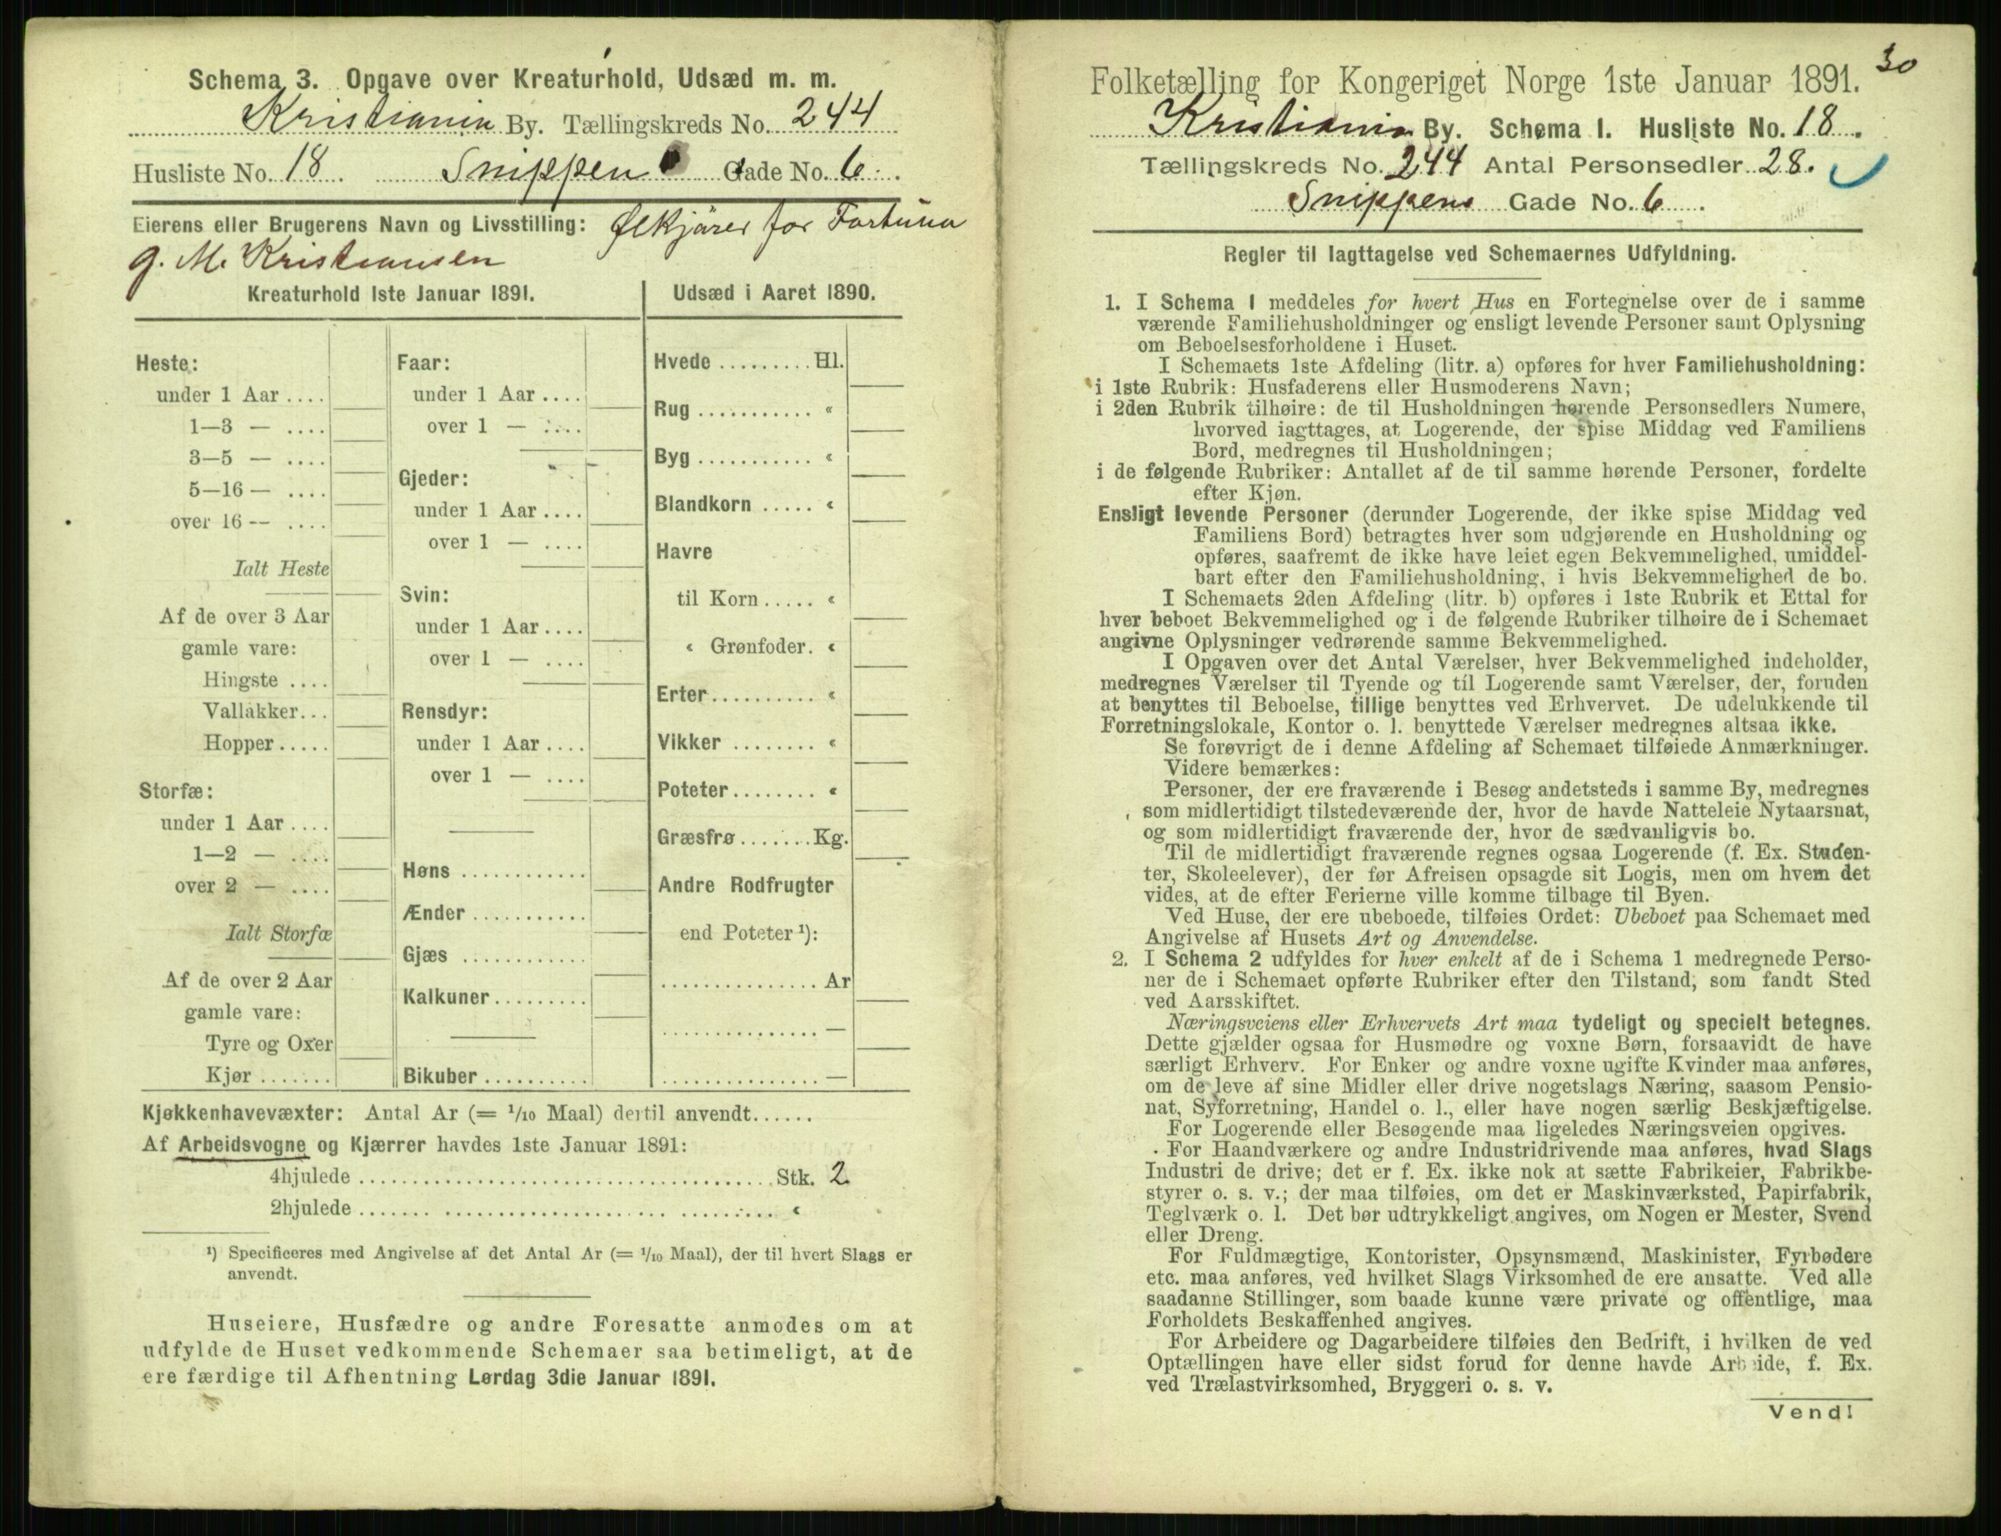 Schema 3. Opgave over Kreaturhold, Udsæd m. m.
Kristiania By. Tællingskreds No. 244
Husliste No. 18. Snippen Gade No. 6.
Eierens eller Brugerens Navn og Livsstilling: Ølkjører for Fortuna
G. M. Kristiansen
Kreaturhold 1ste Januar 1891.
Heste:
under 1 Aar ....
1—3 — ....
3—5 — ....
5—16 — ....
over 16 — ....
Ialt Heste
Af de over 3 Aar
gamle vare:
Hingste ....
Vallakker...
Hopper.....
Storfæ:
under 1 Aar ....
1—2 — ....
over 2 — ....
Ialt Storfæ
Af de over 2 Aar
gamle vare:
Tyre og Oxer
Kjør .......
Faar:
under 1 Aar ....
over 1 — ....
Gjeder:
under 1 Aar ....
over 1 — ....
Svin:
under 1 Aar ....
over 1 — ....
Rensdyr:
under 1 Aar ....
over 1 — ....
Høns ............
Ænder ...........
Gjæs ............
Kalkuner.........
Bikuber..........
Udsæd i Aaret 1890.
Hvede ......... Hl.
Rug ........... «
Byg ........... «
Blandkorn ..... «
Havre
til Korn ..... «
« Grønfoder. «
Erter.......... «
Vikker ........ «
Poteter........ «
Græsfrø ....... Kg.
Andre Rodfrugter
end Poteter ¹):
............... Ar
............... —
............... —
Kjøkkenhavevæxter: Antal Ar (= 1/10 Maal) dertil anvendt......
Af Arbeidsvogne og Kjærrer havdes 1ste Januar 1891:
4hjulede ........................................ Stk. 2
2hjulede ........................................ «
¹) Specificeres med Angivelse af det Antal Ar (= 1/10 Maal), der til hvert Slags er
anvendt.
Huseiere, Husfædre og andre Foresatte anmodes om at
udfylde de Huset vedkommende Schemaer saa betimeligt, at de
ere færdige til Afhentning Lørdag 3die Januar 1891.
30
Folketælling for Kongeriget Norge 1ste Januar 1891.
Kristiania By. Schema I. Husliste No. 18.
Tællingskreds No. 244 Antal Personsedler 28.
Snippens Gade No. 6.
Regler til Iagttagelse ved Schemaernes Udfyldning.
1. I Schema 1 meddeles for hvert Hus en Fortegnelse over de i samme
værende Familiehusholdninger og ensligt levende Personer samt Oplysning
om Beboelsesforholdene i Huset.
I Schemaets 1ste Afdeling (litr. a) opføres for hver Familiehusholdning:
i 1ste Rubrik: Husfaderens eller Husmoderens Navn;
i 2den Rubrik tilhøire: de til Husholdningen hørende Personsedlers Numere,
hvorved iagttages, at Logerende, der spise Middag ved Familiens
Bord, medregnes til Husholdningen;
i de følgende Rubriker: Antallet af de til samme hørende Personer, fordelte
efter Kjøn.
Ensligt levende Personer (derunder Logerende, der ikke spise Middag ved
Familiens Bord) betragtes hver som udgjørende en Husholdning og
opføres, saafremt de ikke have leiet egen Bekvemmelighed, umiddel-
bart efter den Familiehusholdning, i hvis Bekvemmelighed de bo.
I Schemaets 2den Afdeling (litr. b) opføres i 1ste Rubrik et Ettal for
hver beboet Bekvemmelighed og i de følgende Rubriker tilhøire de i Schemaet
angivne Oplysninger vedrørende samme Bekvemmelighed.
I Opgaven over det Antal Værelser, hver Bekvemmelighed indeholder,
medregnes Værelser til Tyende og til Logerende samt Værelser, der, foruden
at benyttes til Beboelse, tillige benyttes ved Erhvervet. De udelukkende til
Forretningslokale, Kontor o. l. benyttede Værelser medregnes altsaa ikke.
Se forøvrigt de i denne Afdeling af Schemaet tilføiede Anmærkninger.
Videre bemærkes:
Personer, der ere fraværende i Besøg andetsteds i samme By, medregnes
som midlertidigt tilstedeværende der, hvor de havde Natteleie Nytaarsnat,
og som midlertidigt fraværende der, hvor de sædvanligvis bo.
Til de midlertidigt fraværende regnes ogsaa Logerende (f. Ex. Studen-
ter, Skoleelever), der før Afreisen opsagde sit Logis, men om hvem det
vides, at de efter Ferierne ville komme tilbage til Byen.
Ved Huse, der ere ubeboede, tilføies Ordet: Ubeboet paa Schemaet med
Angivelse af Husets Art og Anvendelse.
2. I Schema 2 udfyldes for hver enkelt af de i Schema 1 medregnede Perso-
ner de i Schemaet opførte Rubriker efter den Tilstand, som fandt Sted
ved Aarsskiftet.
Næringsveiens eller Erhvervets Art maa tydeligt og specielt betegnes.
Dette gjælder ogsaa for Husmødre og voxne Børn, forsaavidt de have
særligt Erhverv. For Enker og andre voxne ugifte Kvinder maa anføres,
om de leve af sine Midler eller drive nogetslags Næring, saasom Pensio-
nat, Syforretning, Handel o. l., eller have nogen særlig Beskjæftigelse.
For Logerende eller Besøgende maa ligeledes Næringsveien opgives.
For Haandværkere og andre Industridrivende maa anføres, hvad Slags
Industri de drive; det er f. Ex. ikke nok at sætte Fabrikeier, Fabrikbe-
styrer o. s. v.; der maa tilføies, om det er Maskinværksted, Papirfabrik,
Teglværk o. l. Det bør udtrykkeligt angives, om Nogen er Mester, Svend
eller Dreng.
For Fuldmægtige, Kontorister, Opsynsmænd, Maskinister, Fyrbødere
etc. maa anføres, ved hvilket Slags Virksomhed de ere ansatte. Ved alle
saadanne Stillinger, som baade kunne være private og offentlige, maa
Forholdets Beskaffenhed angives.
For Arbeidere og Dagarbeidere tilføies den Bedrift, i hvilken de ved
Optællingen have eller sidst forud for denne havde Arbeide, f. Ex.
ved Trælastvirksomhed, Bryggeri o. s. v.
Vend!